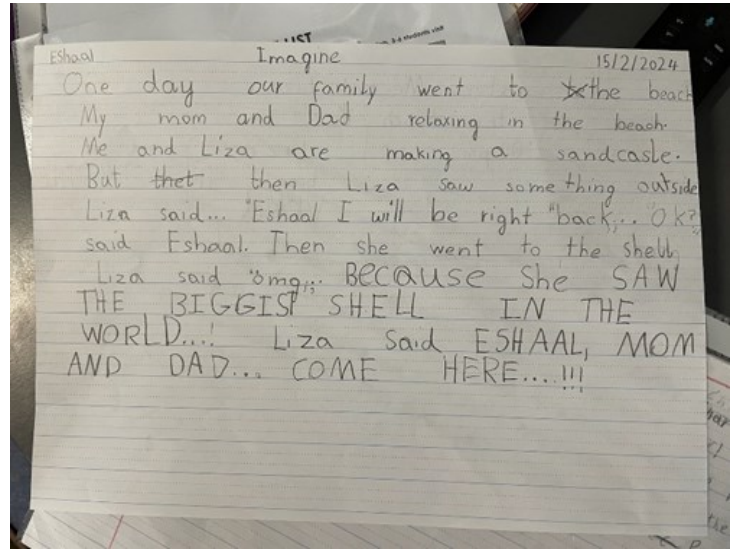 IST
3-4 students visit
Eshaal Imagine 15/2/2024
One day our family went to the beach
My mom and Dad relaxing in the beach.
Me and Liza are making a sandcasle.
But thet then Liza saw something outside
Liza said... "Eshaal I will be right "back,.. "Ok?"
said Eshaal. Then she went to the shell,
Liza said "omg,,, Because She SAW
THE BIGGIST SHELL IN THE
WORLD...! Liza said ESHAAL, MOM
AND DAD... COME HERE....!!!
the